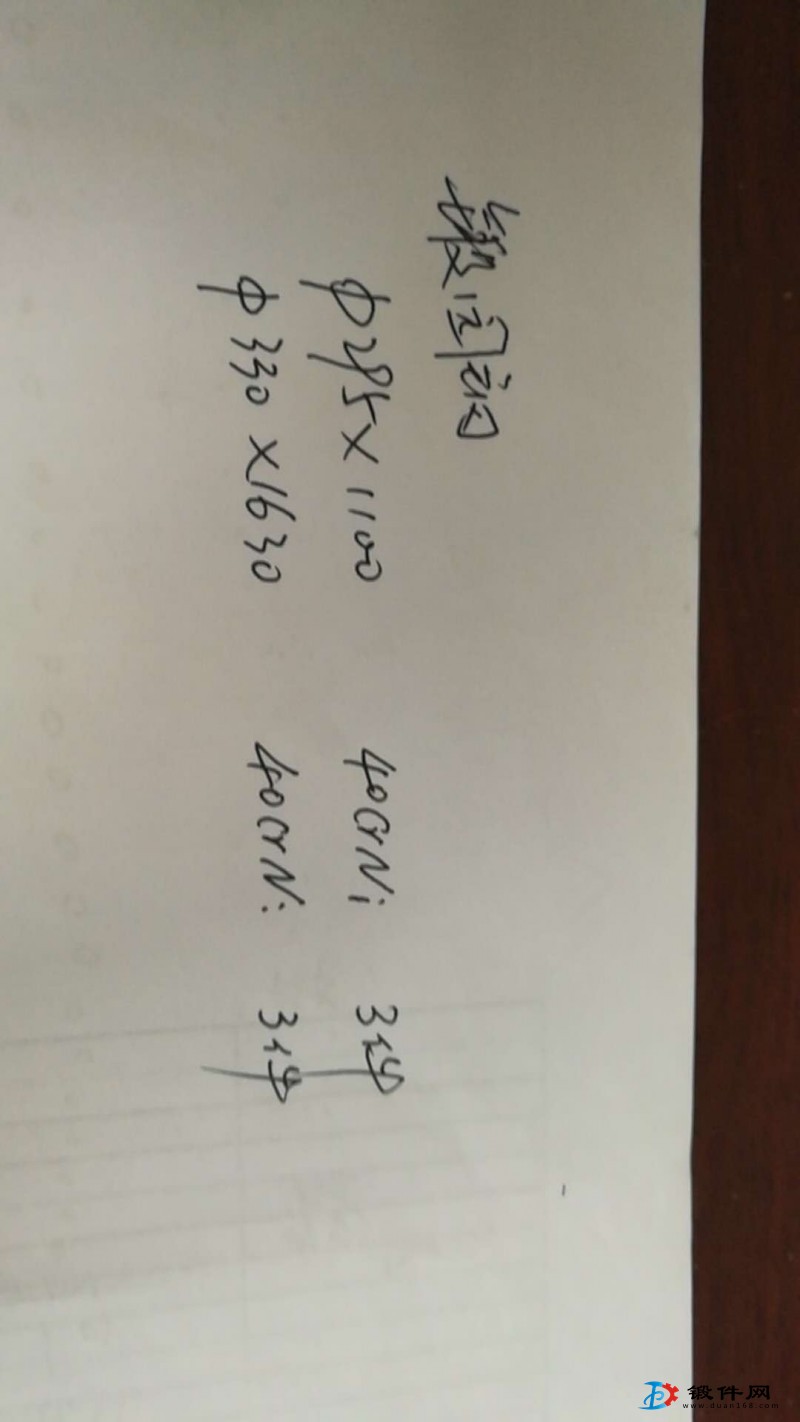 锻圆钢
φ285×1100 40CrNi 3件
φ330×1630 40CrNi 3件
锻件网
www.duan168.com